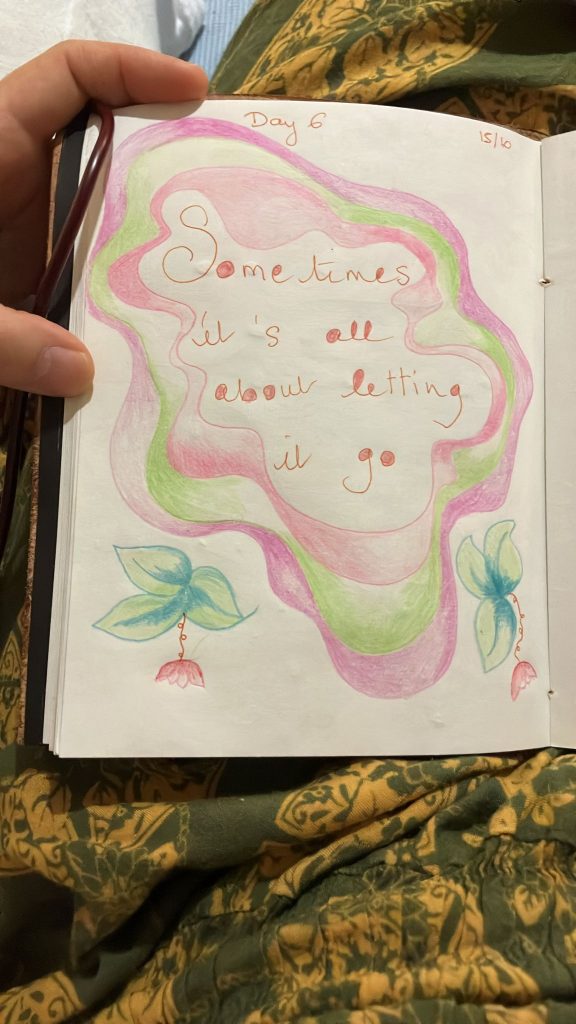 Day 6
15/10
Sometimes
it's all
about letting
it go